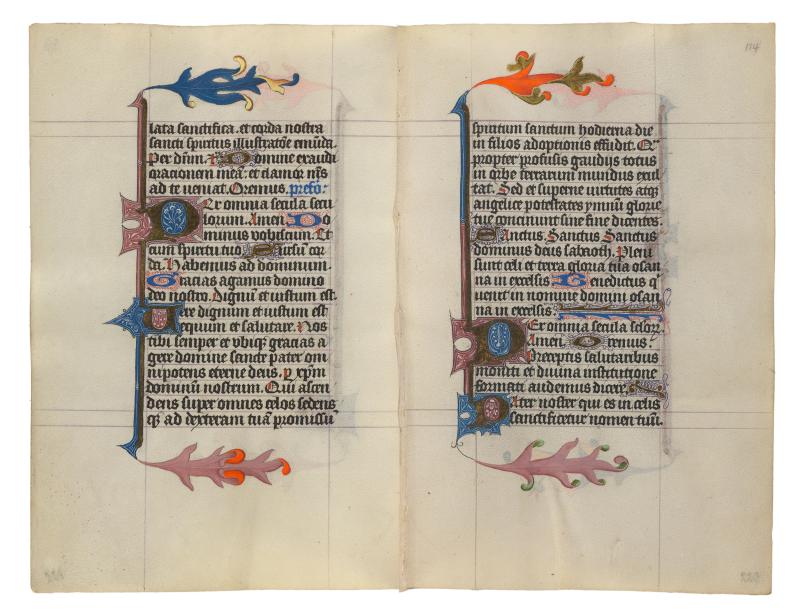 lata sanctifica. et corda nostra
sancti spiritus illustratõe emũda.
Per dñm. Domine exaudi
orationem meã: et clamor mñs
ad te veniat. Oremus. prefõ:
Per omnia secula secu
lorum. Amen. Do
minus vobiscum. Et
cum spiritu tuo. Sursũ cor
da. Habemus ad dominum.
Gracias agamus domino
deo nostro. Dignũ et iustum est.
Vere dignum et iustum est
equum et salutare. Nos
tibi semper et vbiqꝫ gracias a
gere domine sancte pater om
nipotens eterne deus. ꝑ xp̃m
dominũ nostrum. Qui ascen
dens super omnes celos sedens
qꝫ ad dexteram tuã promissũ
114
spiritum sanctum hodierna die
in filios adoptionis effudit. Qua
propter profusis gaudijs totus
in orbe terrarum mundus exul
tat. Sed et superne virtutes atqꝫ
angelice potestates ymnũ glorie
tue concinunt sine fine dicentes.
Sanctus. Sanctus Sanctus
dominus deus sabaoth. Pleni
sunt celi et terra gloria tua osan
na in excelsis Benedictus q̃
uenit in nomine domini osan
na in excelsis.
Per omnia secula sclorꝫ.
Amen. Oremus.
Preceptis salutaribus
moniti et diuina institutione
formati audemus dicere
Pater noster qui es in celis
sanctificetur nomen tuũ.